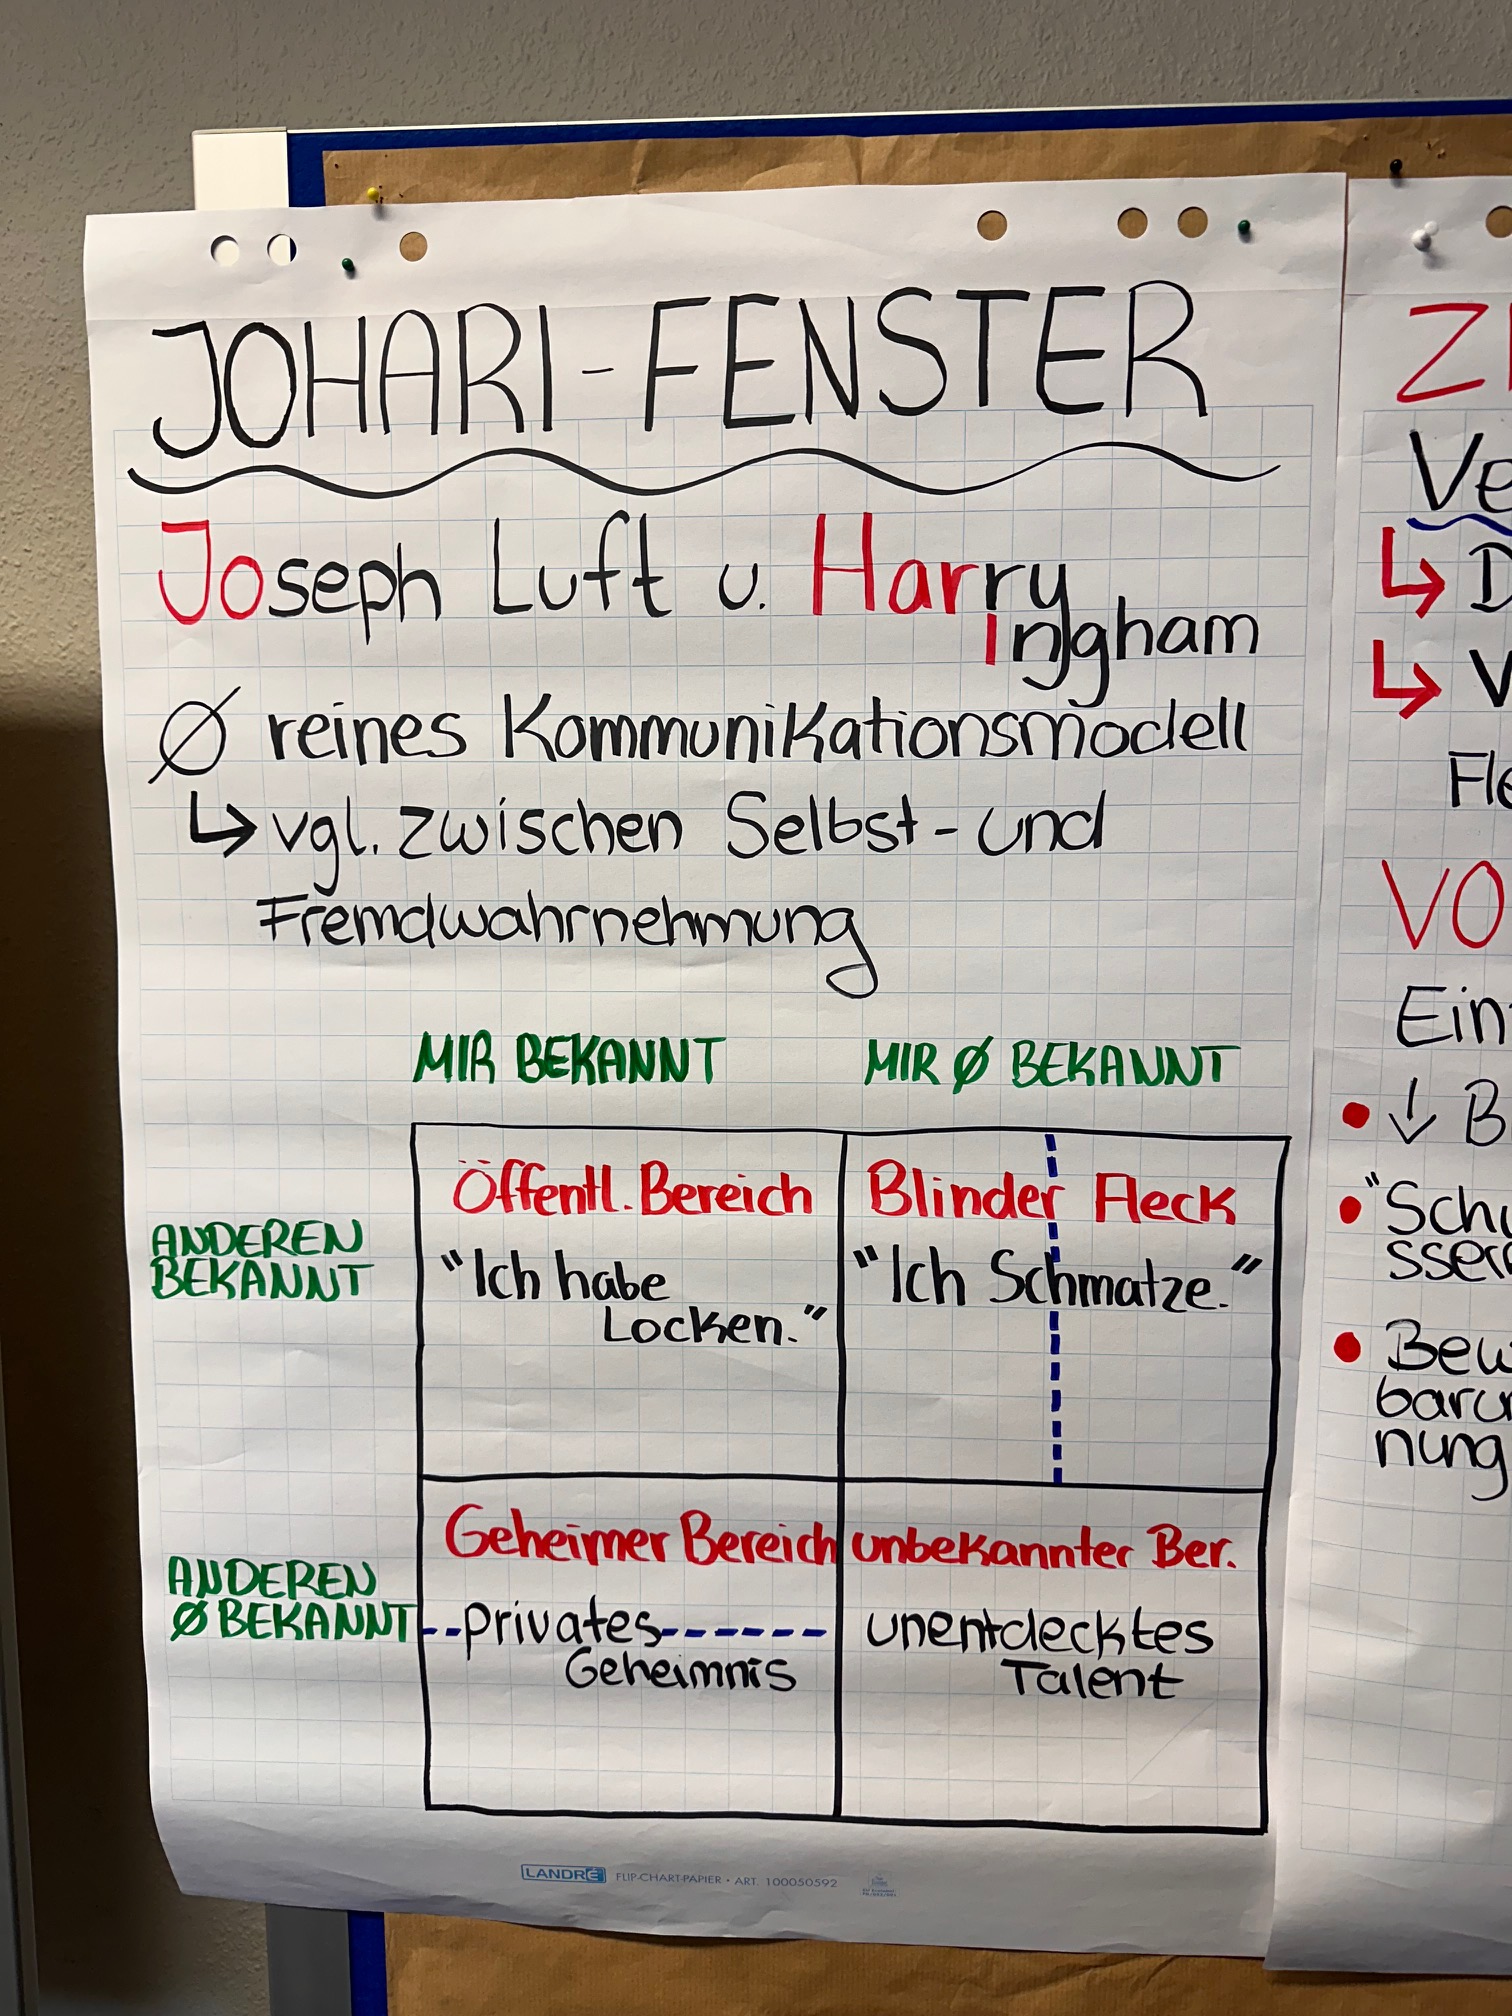 JOHARI-FENSTER
Joseph Luft u. Harry
Ingham
Ø reines Kommunikationsmodell
↳ vgl. zwischen Selbst- und
Fremdwahrnehmung
MIR BEKANNT
MIR Ø BEKANNT
ANDEREN
BEKANNT
Öffentl. Bereich
"Ich habe
Locken."
Blinder Fleck
"Ich Schmatze."
ANDEREN
Ø BEKANNT
Geheimer Bereich
privates
Geheimnis
unbekannter Ber.
unentdecktes
Talent
LANDRÉ FLIP-CHART-PAPIER • ART. 100050592
Z
Ve
↳ D
↳ V
Fle
VO
Ein
• ↓ B
• "Schu
sser
• Bew
barun
nung